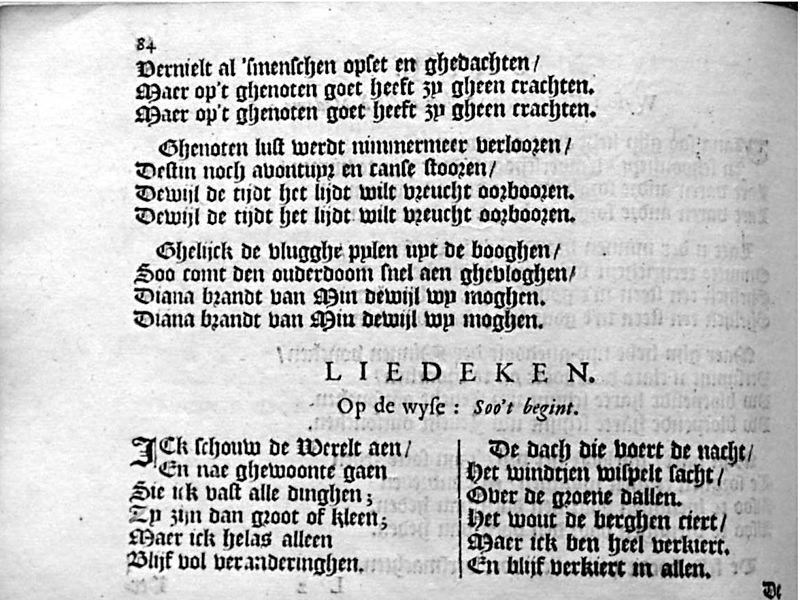 84
Vernielt al 'smenschen opset en ghedachten/
Maer op't ghenoten goet heeft zy gheen crachten.
Maer op't ghenoten goet heeft zy gheen crachten.
Ghenoten lust werdt nimmermeer verlooren/
Destin noch avontuyr en canse stooren/
Dewijl de tijdt het lijdt wilt vreucht oorbooren.
Dewijl de tijdt het lijdt wilt vreucht oorbooren.
Ghelijck de vlugghe pylen uyt de booghen/
Soo comt den ouderdoom snel aen ghevloghen/
Diana brandt van Min dewijl wy moghen.
Diana brandt van Min dewijl wy moghen.
LIEDEKEN.
Op de wyse: Soo't begint.
ICk schouw de Werelt aen/
En nae ghewoonte gaen
Sie ick vast alle dinghen;
Ty zijn dan groot of kleen;
Maer ick helas alleen
Blijf vol veranderinghen.
De dach die voert de nacht/
Het windtjen wispelt sacht/
Over de groene dallen.
Het wout de berghen ciert/
Maer ick ben heel verkiert.
En blijf verkiert in allen.
De